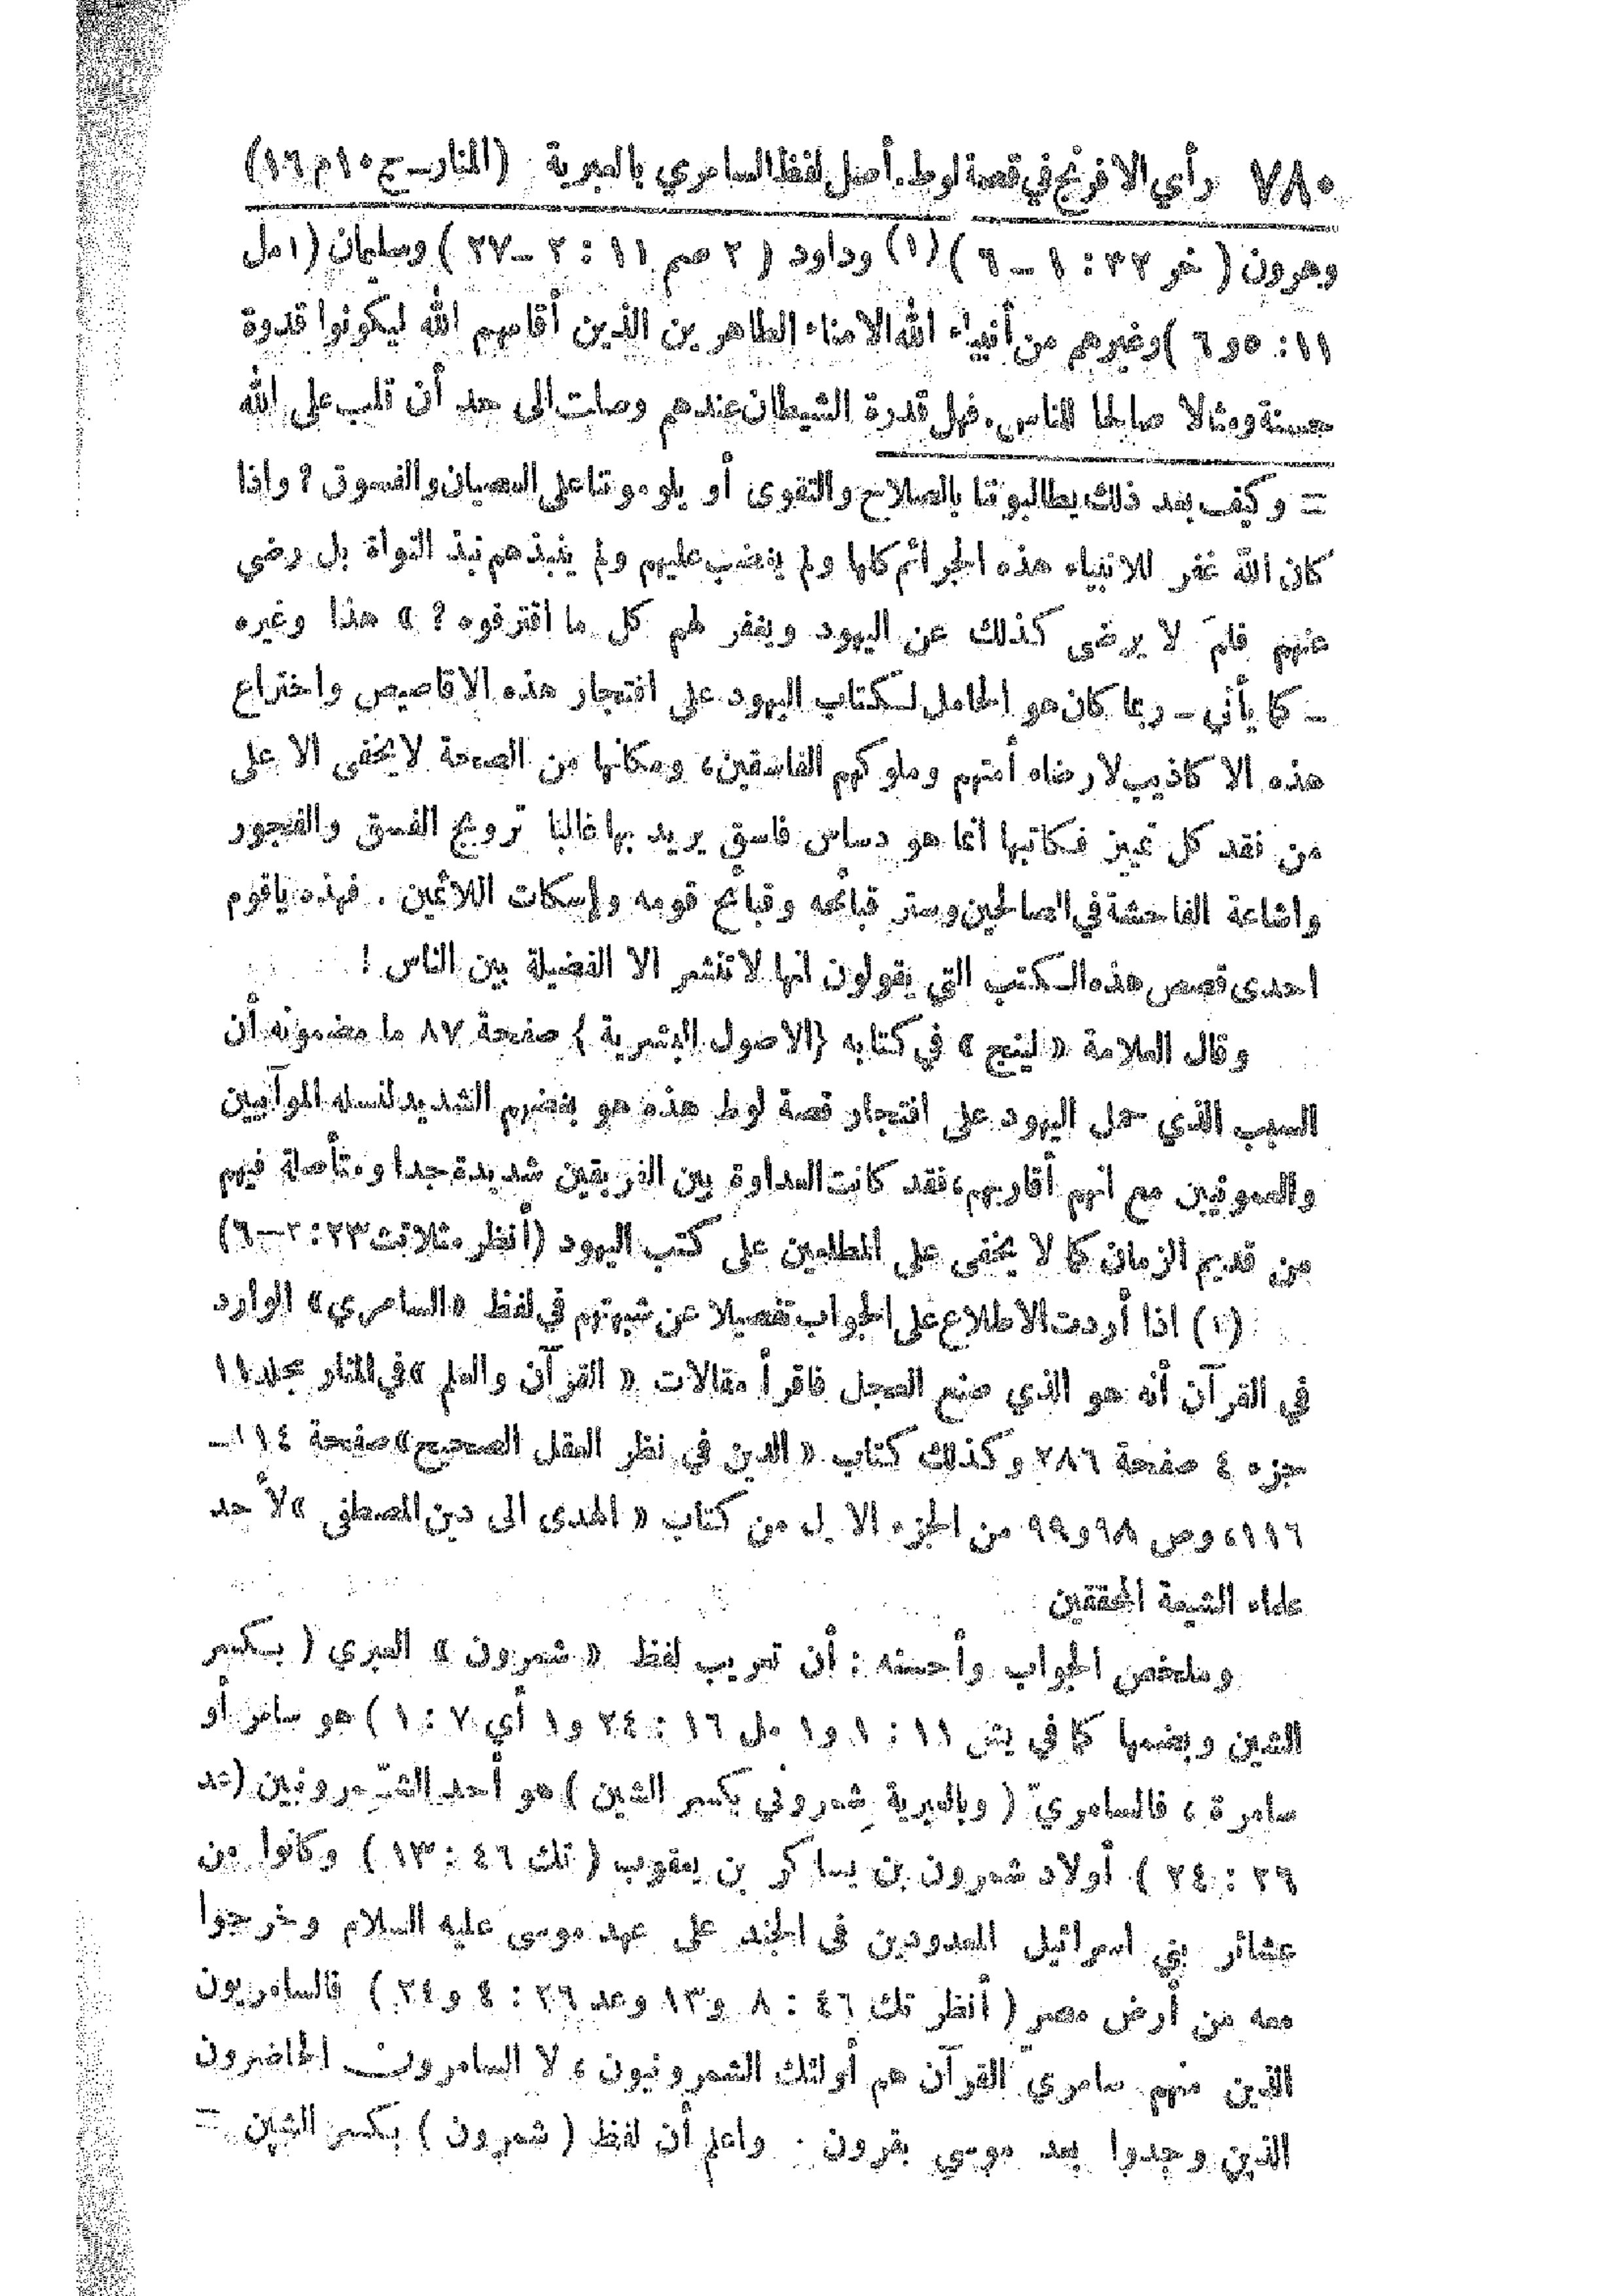 ٧٨٠ رأي الافرنج في قصة لوط. أصل لفظ السامري بالعبرية (المنار ـ ج ١٠ م ١٦)
وهرون ( خر ٣٢ : ١ ـ ٦ ) (١) وداود ( ٢ صم ١١ : ٢ ـ ٢٧ ) وسليمان ( ١ مل
١١ : ٥ و ٦ ) وغيرهم من أنبياء الله الامناء الطاهرين الذين أقامهم الله ليكونوا قدوة
حسنة ومثالا صالحا للناس. فهل قدرة الشيطان عندهم وصلت الى حد أن تلب على الله
= وكيف بعد ذلك يطالبوننا بالصلاح والتقوى أو يلوموننا على العصيان والفسوق ? واذا
كان الله غفر للانبياء هذه الجرائم كلها ولم يغضب عليهم ولم ينبذهم نبذ النواة بل رضي
عنهم فلمَ لا يرضى كذلك عن اليهود ويغفر لهم كل ما اقترفوه ? » هذا وغيره
ـ كما يأتي ـ ربما كان هو الحامل لكتاب اليهود على افتجار هذه الاقاصيص واختراع
هذه الاكاذيب لارضاء أمتهم وملوكهم الفاسقين، ومكانها من الصحة لا يخفى الا على
من نقد كل تمييز فكاتبها انما هو دساس فاسق يريد بها غالبا ترويج الفسق والفجور
واشاعة الفاحشة في الصالحين وستر قبائحه وقبائح قومه وإسكات اللائمين . فهذه ياقوم
احدى قصص هذه الكتب التي يقولون انها لا تنشر الا الفضيلة بين الناس !
وقال العلامة « لينج » في كتابه {الاصول البشرية } صفحة ٨٧ ما مضمونه أن
السبب الذي حمل اليهود على افتجار قصة لوط هذه هو بغضهم الشديد لنسله الموآبيين
والعمونيين مع انهم أقاربهم، فقد كانت العداوة بين الفريقين شديدة جدا ومتأصلة فيهم
من قديم الزمان كما لا يخفى على المطلعين على كتب اليهود (أنظر مثلا تث ٢٣ : ٣ ـ ٦)
(١) اذا أردت الاطلاع على الجواب تفصيلا عن شبهتهم في لفظ «السامري» الوارد
في القرآن أنه هو الذي صنع العجل فاقرأ مقالات « القرآن والعلم » في المنار مجلد ١١
جزء ٤ صفحة ٢٨٦ وكذلك كتاب « الدين في نظر العقل الصحيح» صفحة ١١٤ ـ
١١٦، وص ٩٨ و ٩٩ من الجزء الا ل من كتاب « الهدى الى دين المصطفى » لأحد
علماء الشيعة المحققين
وملخص الجواب وأحسنه : أن تعريب لفظ « شمرون » العبري ( بكسر
الشين وبضمها كما في يش ١١ : ١ و ١ مل ١٦ : ٢٤ و ١ أي ٧ : ١ ) هو سامر أو
سامرة ، فالسامريّ ( وبالعبرية شِمروني بكسر الشين ) هو أحد الشِّمرونيين (عد
٢٦ : ٢٤ ) أولاد شمرون بن يساكر بن يعقوب ( تك ٤٦ : ١٣ ) وكانوا من
عشائر بني اسرائيل المعدودين في الجند على عهد موسى عليه السلام وخرجوا
معه من أرض مصر ( أنظر تك ٤٦ : ٨ و ١٣ وعد ٢٦ : ٤ و ٢٤ ) فالسامريون
الذين منهم سامريّ القرآن هم أولئك الشمرونيون ، لا السامرون الحاضرون
الذين وجدوا بعد موسى بقرون . واعلم أن لفظ ( شمرون ) بكسر الشين =